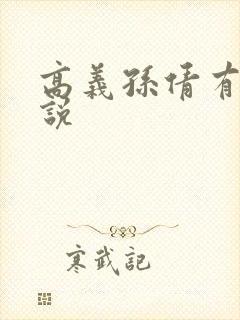 高義孫倩有
說
寒武記